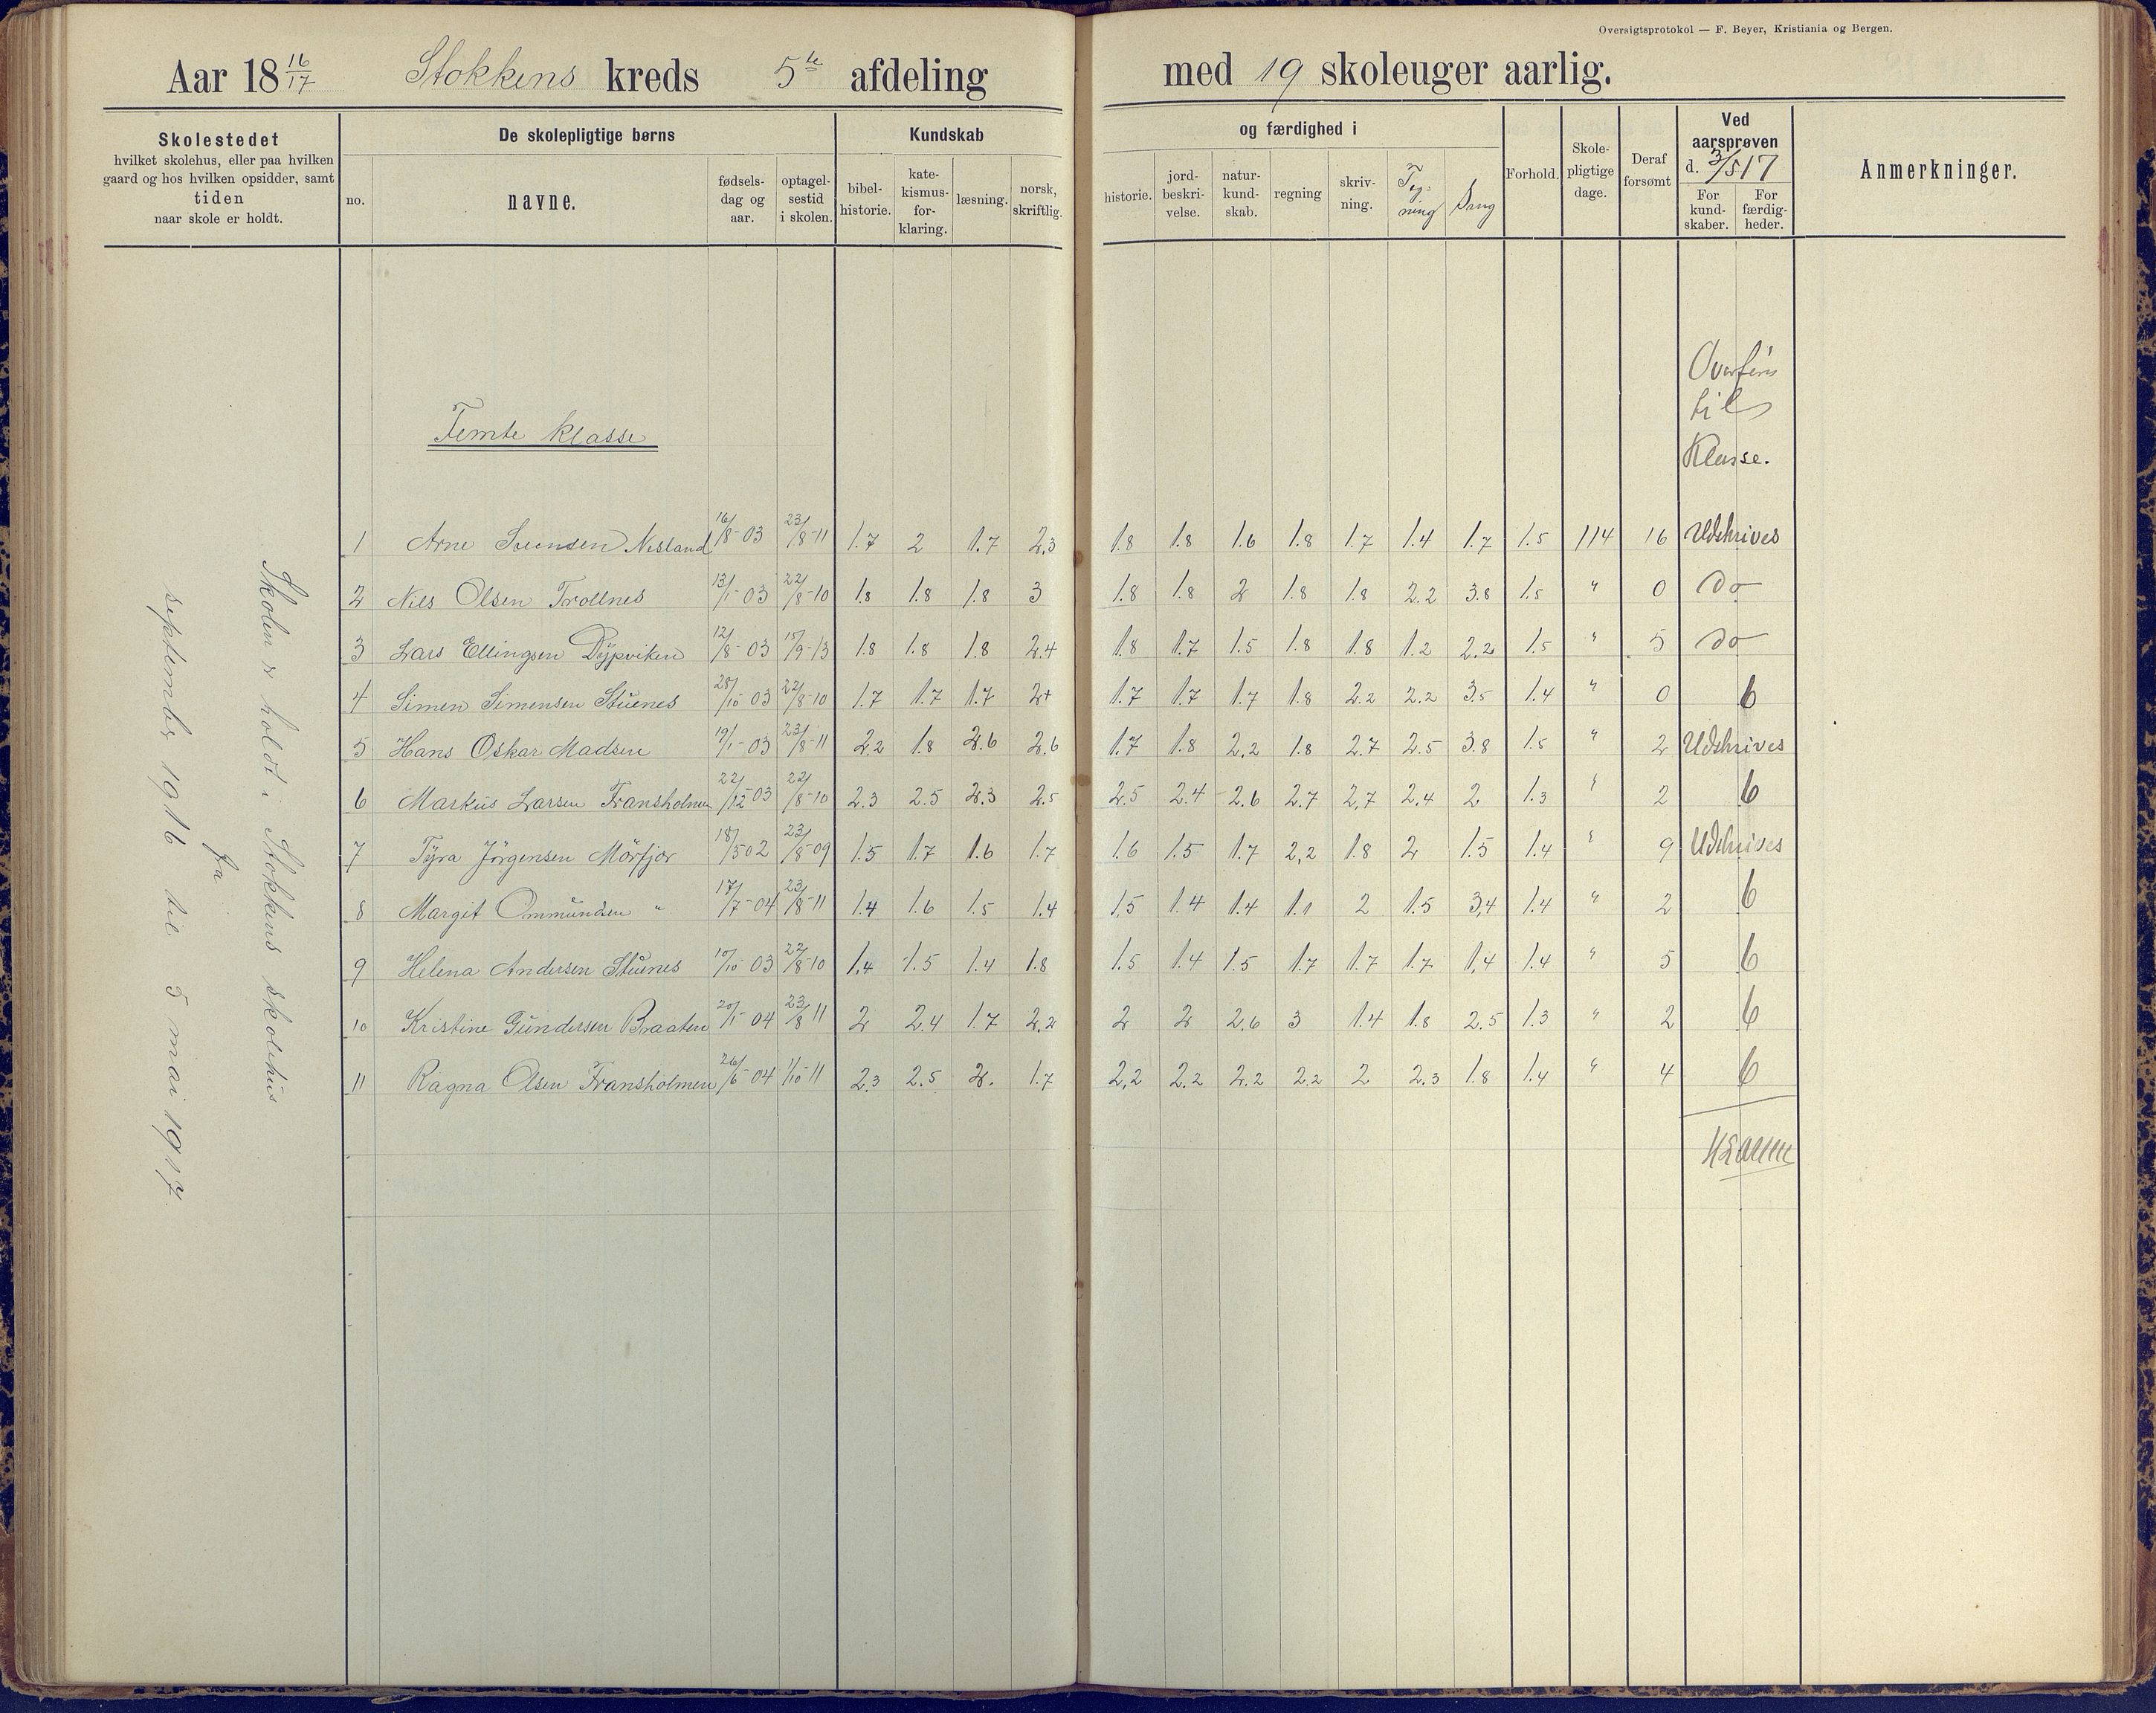 Oversigtsprotokol — F. Beyer, Kristiania og Bergen.
Aar 18 16/17 Stokkens kreds 5te afdeling med 19 skoleuger aarlig.
Skolestedet
hvilket skolehus, eller paa hvilken
gaard og hos hvilken opsidder, samt
tiden
naar skole er holdt.
De skolepligtige børns
no.
navne.
fødsels-
dag og
aar.
optagel-
sestid
i skolen.
Kundskab og færdighed i
bibel-
historie.
kate-
kismus-
for-
klaring.
læsning.
norsk,
skriftlig.
historie.
jord-
beskri-
velse.
natur-
kund-
skab.
regning
skriv-
ning.
Teg-
ning
Sang
Forhold.
Skole-
pligtige
dage.
Deraf
forsømt
Ved
aarsprøven
d. 3/5 17
For
kund-
skaber.
For
færdig-
heder.
Anmerkninger.
Skolen er holdt i Stokkens skolehus
fra
september 1916 til 5 mai 1917.
Femte klasse
Overføres
til
Klasse.
1 Arne Svensen Nesland 16/8-03 23/8-11 1.7 2 1.7 2.3 1.8 1.8 1.6 1.8 1.7 1.4 1.7 1.5 114 16 Udskrives
2 Nils Olsen Trollnes 13/1-03 22/8-10 1.8 1.8 1.8 3 1.8 1.8 2 1.8 1.8 2.2 3.8 1.5 " 0 do
3 Lars Ellingsen Dypviken 12/8-03 15/9-13 1.8 1.8 1.8 2.4 1.8 1.7 1.5 1.8 1.8 1.2 2.2 1.5 " 5 do
4 Simen Simensen Stuenes 28/10 03 22/8-10 1.7 1.7 1.7 2+ 1.7 1.7 1.7 1.8 2.2 2.2 3.5 1.4 " 0 6
5 Hans Oskar Madsen 19/1-03 23/8-11 2.2 1.8 2.6 2.6 1.7 1.8 2.2 1.8 2.7 2.5 3.8 1.5 " 2 Udskrives
6 Markus Larsen Fransholmen 22/12 03 22/8-10 2.3 2.5 2.3 2.5 2.5 2.4 2.6 2.7 2,7 2.4 2 1.3 " 2 6
7 Tyra Jörgensen Mörfjær 18/5 02 23/8-09 1.5 1.7 1.6 1.7 1.6 1.5 1.7 2,2 1.8 2 1.5 1.4 " 9 Udskrives
8 Margit Ommundsen " 17/7-04 23/8-11 1.4 1.6 1.5 1.4 1,5 1.4 1.4 1.1 2 1.5 3,4 1.4 " 2 6
9 Helena Andersen Stuenes 17/10 03 22/8-10 1,4 1.5 1.4 1.8 1.5 1.4 1.5 1.7 1.7 1.7 1,4 1.4 " 5 6
10 Kristine Gundersen Braaten 20/1-04 23/8 11 2 2.4 1.7 2.2 2 2 2,6 3 1.4 1.8 2.5 1.3 " 2 6
11 Ragna Olsen Fransholmen 26/6 04 1/10-11 2.3 2.5 2. 1.7 2,2 2.2 2.2 2.2 2 2.3 1.8 1.4 " 4 6